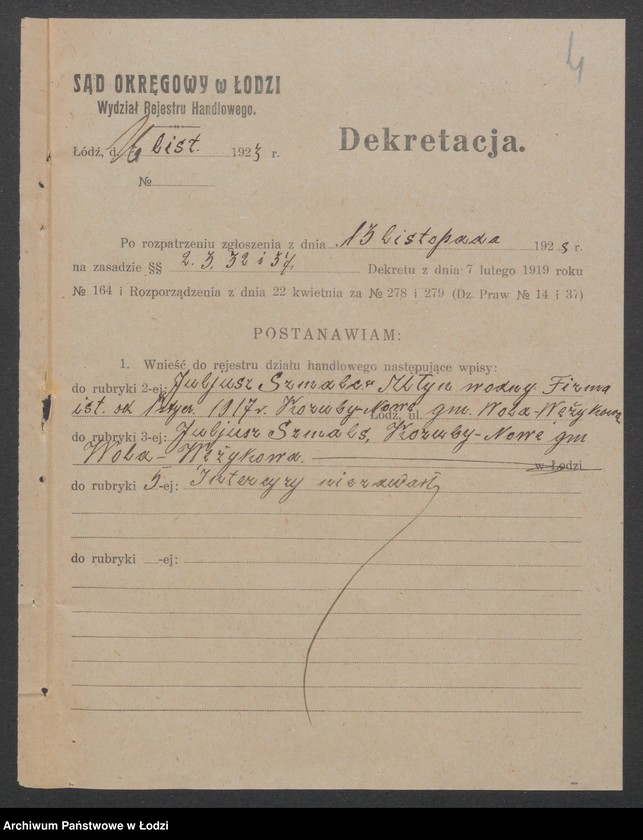 4
SĄD OKRĘGOWY w ŁODZI
Wydział Rejestru Handlowego.
Dekretacja.
Łódź, d. 16 list. 1923 r.
№
Po rozpatrzeniu zgłoszenia z dnia 13 listopada 1923 r.
na zasadzie §§ 2. 3. 32 i 57. Dekretu z dnia 7 lutego 1919 roku
№ 164 i Rozporządzenia z dnia 22 kwietnia za № 278 i 279 (Dz. Praw № 14 i 37)
POSTANAWIAM:
1. Wnieść do rejestru działu handlowego następujące wpisy:
do rubryki 2-ej: Juljusz Szmalc Młyn wodny. Firma
ist. od 1917 r. Kozuby-Nowe Łódź, ul. gm. Wola-Wężykowa
do rubryki 3-ej: Juljusz Szmalc, Kozuby-Nowe gm
Wola-Wężykowa. w Łodzi
do rubryki 5-ej: Intercyzy nie zawarł
do rubryki -ej:
Archiwum Państwowe w Łodzi